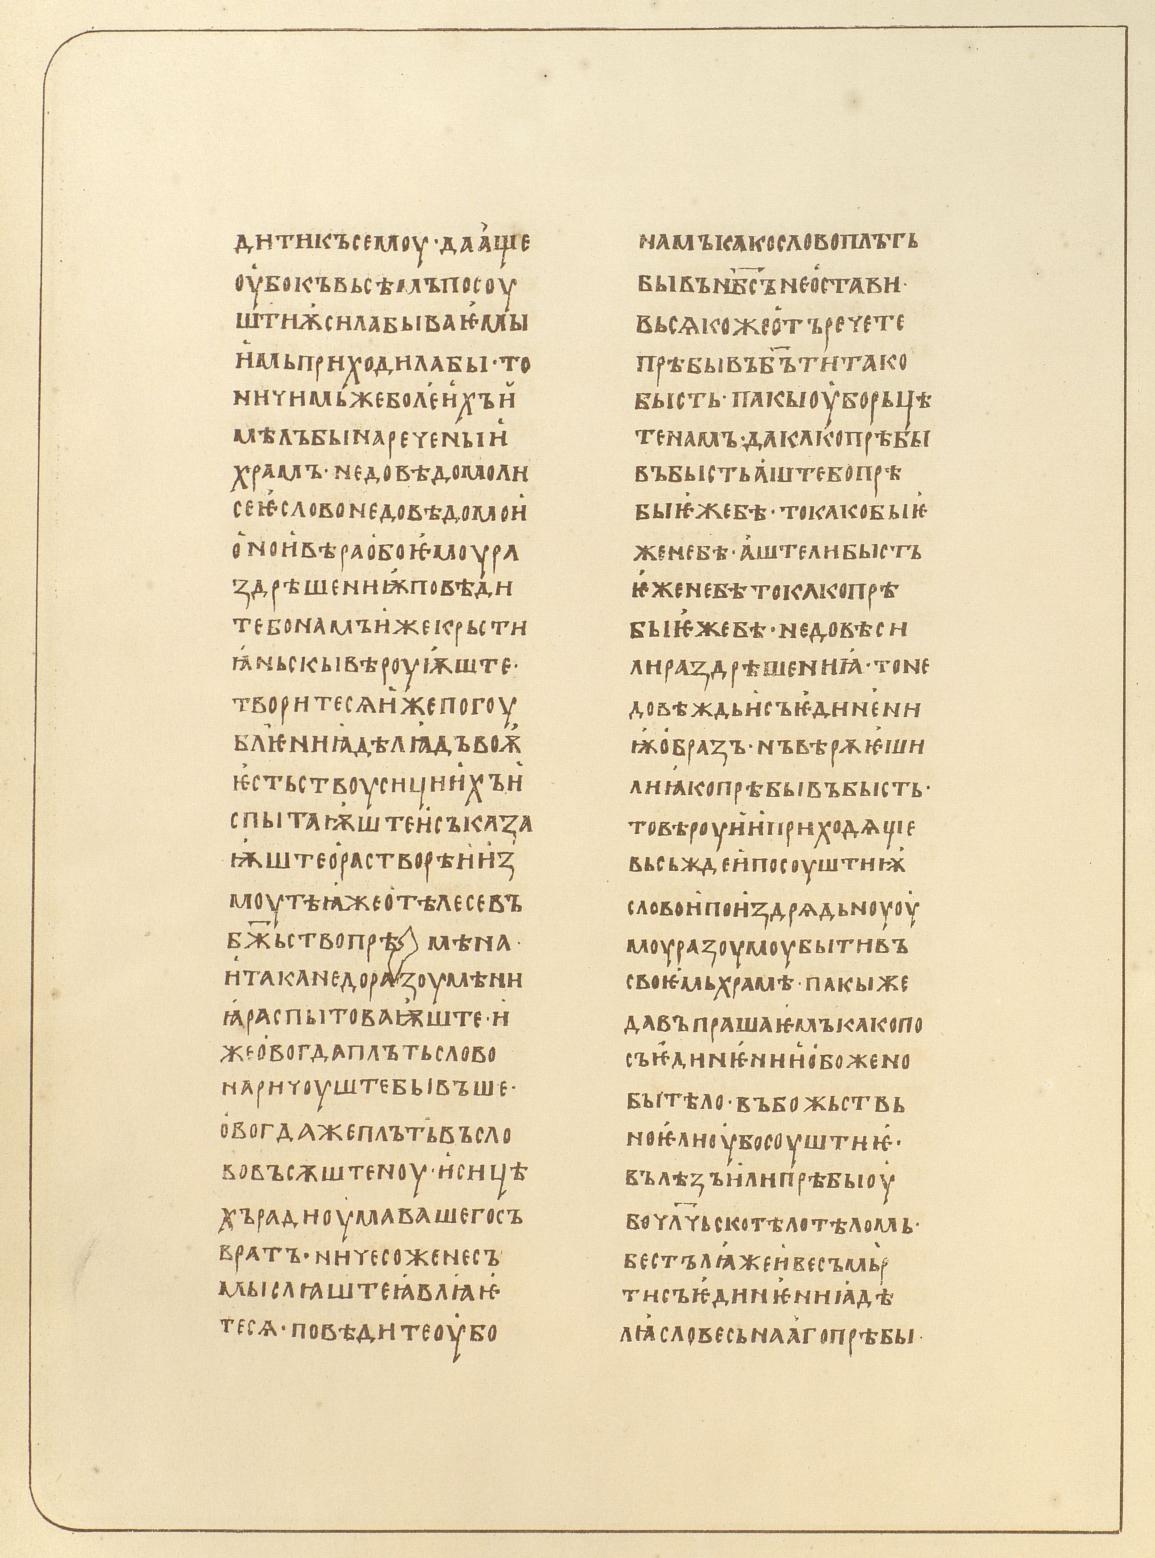 дитикъсемоу·дааще
оубокъвьсѣмъпосоу
штиѭсилабываѥмы
имьприходилабы·то
ничимьжеболеихъи
мѣлъбынареченыи
храмъ·недовѣдомоли
сеѥсловонедовѣдомои
оноивѣраобоѥмоура
здрѣшенниѭповѣди
тебонамъижекрьсти
ꙗньскывѣроуѭште·
творитесѧижепогоу
блѥнниꙗдѣлꙗдъвоѫ
ѥстьствоусициихъи
спытаѭштеисъказа
ѭштеорастворѣниіз
моутѣꙗжеотѣлесевъ
бж҃ьствопрѣмѣна·
итаканедоразоумѣни
ꙗраспытоваѭште·и
жеовогдаплътьслово
наричоуштебывъше·
овогдажеплътьвъсло
вовъсѫштеноу·исицѣ
хърадиоумавашегосъ
вратъ·ничесоженесъ
мыслꙗштеꙗвлꙗѥ
тесѧ·повѣдитеоубо
намъкакословоплъть
бывънб҃сънеостави·
вьсѧкожеотъречете
прѣбывъб҃ътитако
бысть·пакыоуборьцѣ
тенамъ·дакакопрѣбы
въбыстьаштебопрѣ
быѥжебѣ·токакобыѥ
женебѣ·аштелибысть
ѥженебѣтокакопрѣ
быѥжебѣ·недовѣси
лираздрѣшенниꙗ·тоне
довѣждьисъѥдинени
ѭобразъ·нъвѣрѫѥши
лиꙗкопрѣбывъбысть·
товѣроуиииприходѧще
вьсьждеипосоуштиѭ
словоипоиздрѧдьноуоу
моуразоумоубытивъ
своѥмьхрамѣ·пакыже
давъпрашаѥмъкакопо
съѥдинѥниѝобожено
бытѣло·въбожьствь
ноѥлиоубосоуштиѥ·
вълѣзъилипрѣбыоу
бочл҃чьскотѣлотѣломь·
бестълꙗжеивесъмьр
тисъѥдинѥнниꙗдѣ
лꙗсловесьнаагопрѣбы·